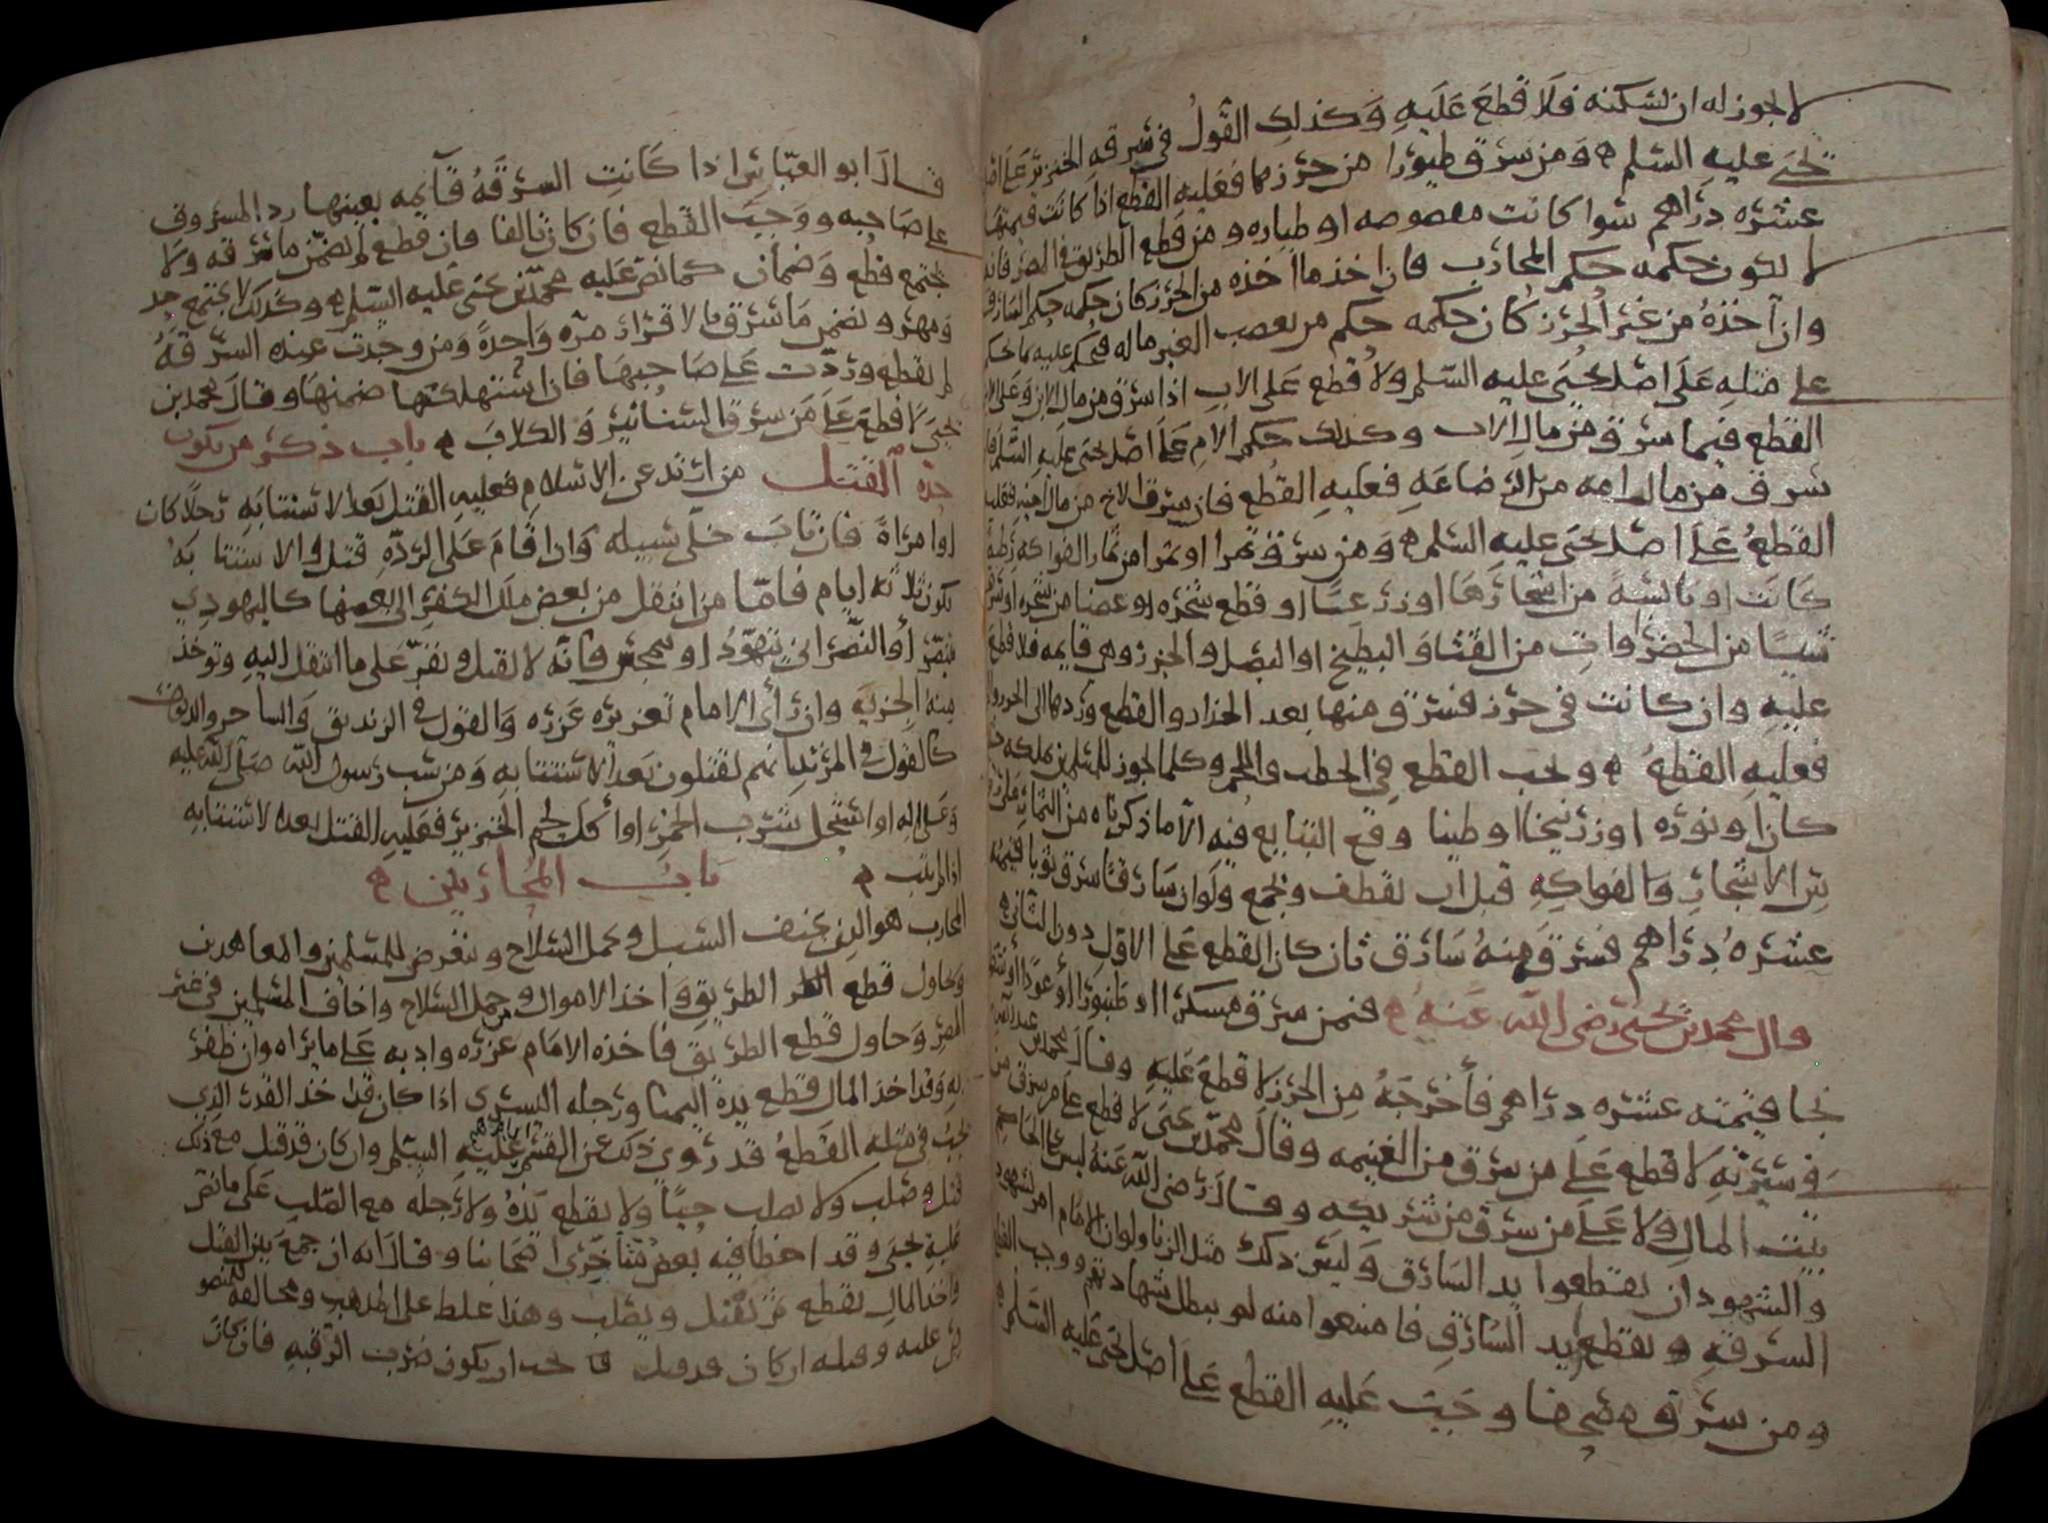 لا يجوز له ان يسكنه فلا قطع عليه وكذلك القول في سرقه الخنزير على اصل
يحيى عليه السلم ه ومن سرق طيورا من حرزها فعليه القطع اذا كانت قيمتها
عشره دراهم سوا كانت مقصوصه او طياره ومن قطع الطريق في المصر فانه
لا يكون حكمه حكم المحارب فان اخذ ما اخذه من الحرز كان حكمه حكم السارق
وان اخذه من غير الحرز كان حكمه حكم من يغصب الغير ماله فيحكم عليه بما يحكم
على مثله على اصل يحيى عليه السلم ولا قطع على الاب اذا سرق من مال الابن وعلى الابن
القطع فيما سرق من مال الاب وكذلك حكم الام على اصل يحيى عليه السلم فان
سرق من مال امه من الرضاعه فعليه القطع فان سرق الاخ من مال اخيه فعليه
القطع على اصل يحيى عليه السلم ه ومن سرق تمرا او ثمرا من ثمار الفواكه رطبه
كانت او يابسه من اشجارها او زرعا او قطع شجره او غصنا من شجره او سرق
شيئا من الخضراوات من القثا والبطيخ او البصل والجزر وهي قايمه فلا قطع
عليه وان كانت في حرز فسرق منها بعد الجذاذ والقطع وردها الى الحرز
فعليه القطع ه ويجب القطع في الحطب واللحم وكلما يجوز للمسلمين تملكه
كان او نوره او زرنيخا او طينا وقع التبايع فيه الا ما ذكرناه من الثمار على
الاشجار والفواكه قبل ان تقطف وتجمع ولو ان سارقا سرق ثوبا قيمته
عشره دراهم فسرق منه سارق ثان كان القطع على الاول دون الثاني ه
قال محمد بن يحيى رضي الله عنه ه فمن سرق مسكرا او طنبورا او عودا او
قيمته عشره دراهم فأخرجه من الحرز لا قطع عليه وقال محمد بن عبد الله
في سيرته لا قطع على من سرق من الغنيمه وقال محمد بن يحيى لا قطع على من سرق من
بيت المال ولا على من سرق من شريكه وقال رضي الله عنه ليس على
والشهود ان يقطعوا يد السارق وليس ذلك مثل الزنا ولو ان الامام امر الشهود
السرقه بقطع يد السارق فامتنعوا منه لم يبطل شهادتهم ووجب القطع
ومن سرق مصحفا وجبت عليه القطع على اصل يحيى عليه السلم ه
قال ابو العباس اذا كانت السرقه قايمه بعينها رد المسروق
على صاحبه ووجب القطع فان كان تالفا فان قطع لم يضمن ما سرقه ولا
يجتمع قطع وضمان كما نص عليه محمد بن يحيى عليه السلم ه وكذلك لا يجتمع حد
ومهر ويضمن ما سرق بالاقرار مره واحده ومن وجدت عنده السرقه
لم يقطع وردت على صاحبها فان استهلكها ضمنها وقال محمد بن
يحيى لا قطع على من سرق السنانير والكلاب ه باب ذكر من يكون
حده القتل من ارتد عن الاسلام فعليه القتل بعد الاستتابه رجلا كان
او امراة فان تاب خلى سبيله وان اقام على الرده قتل والاستتابه
تكون ثلاثه ايام فامّا من انتقل من بعض ملل الكفر الى بعضها كاليهودي
يتنصر أو النصراني يتهود او يتمجس فانه لا يقتل ويقر على ما انتقل اليه وتوخذ
منه الجزيه وان رأى الامام تعزيره عزره والقول في الزنديق والساحر والديوث
كالقول في المرتد انهم يقتلون بعد الاستتابه ومن سب رسول الله صلى الله عليه
وعلى اله او استحل شرب الخمر او أكل لحم الخنزير فعليه القتل بعد الاستتابه
اذا لم يتب ه باب المحاربين ه
المحارب هو الذي يخيف السبل ويحمل السلاح ويتعرض للمسلمين والمعاهدين
ويحاول قطع الطريق واخذ الاموال ومن حمل السلاح واخاف المسلمين في غير
المصر وحاول قطع الطريق فاخذه الامام عزره وادبه على ما يراه وان ظفر
به وقد اخذ المال قطع يده اليمنا ورجله اليسرى اذا كان قد اخذ القدر الذي
يجب في مثله القطع قد روي ذلك عن القسم عليه السلم وان كان قد قتل مع ذلك
قتل وصلب ولا يصلب حيا ولا يقطع يده ولا رجله مع الصلب على ما نص
عليه يحيى وقد اخطا فيه بعض متأخرى اصحابنا وقال انه ان جمع بين القتل
واخذ المال يقطع ثم يقتل ويصلب وهذا غلط على المذهب ومخالفه للمنصوص
عليه وقتله ان كان قد قتل يجب ان يكون ضرب الرقبه فان كان